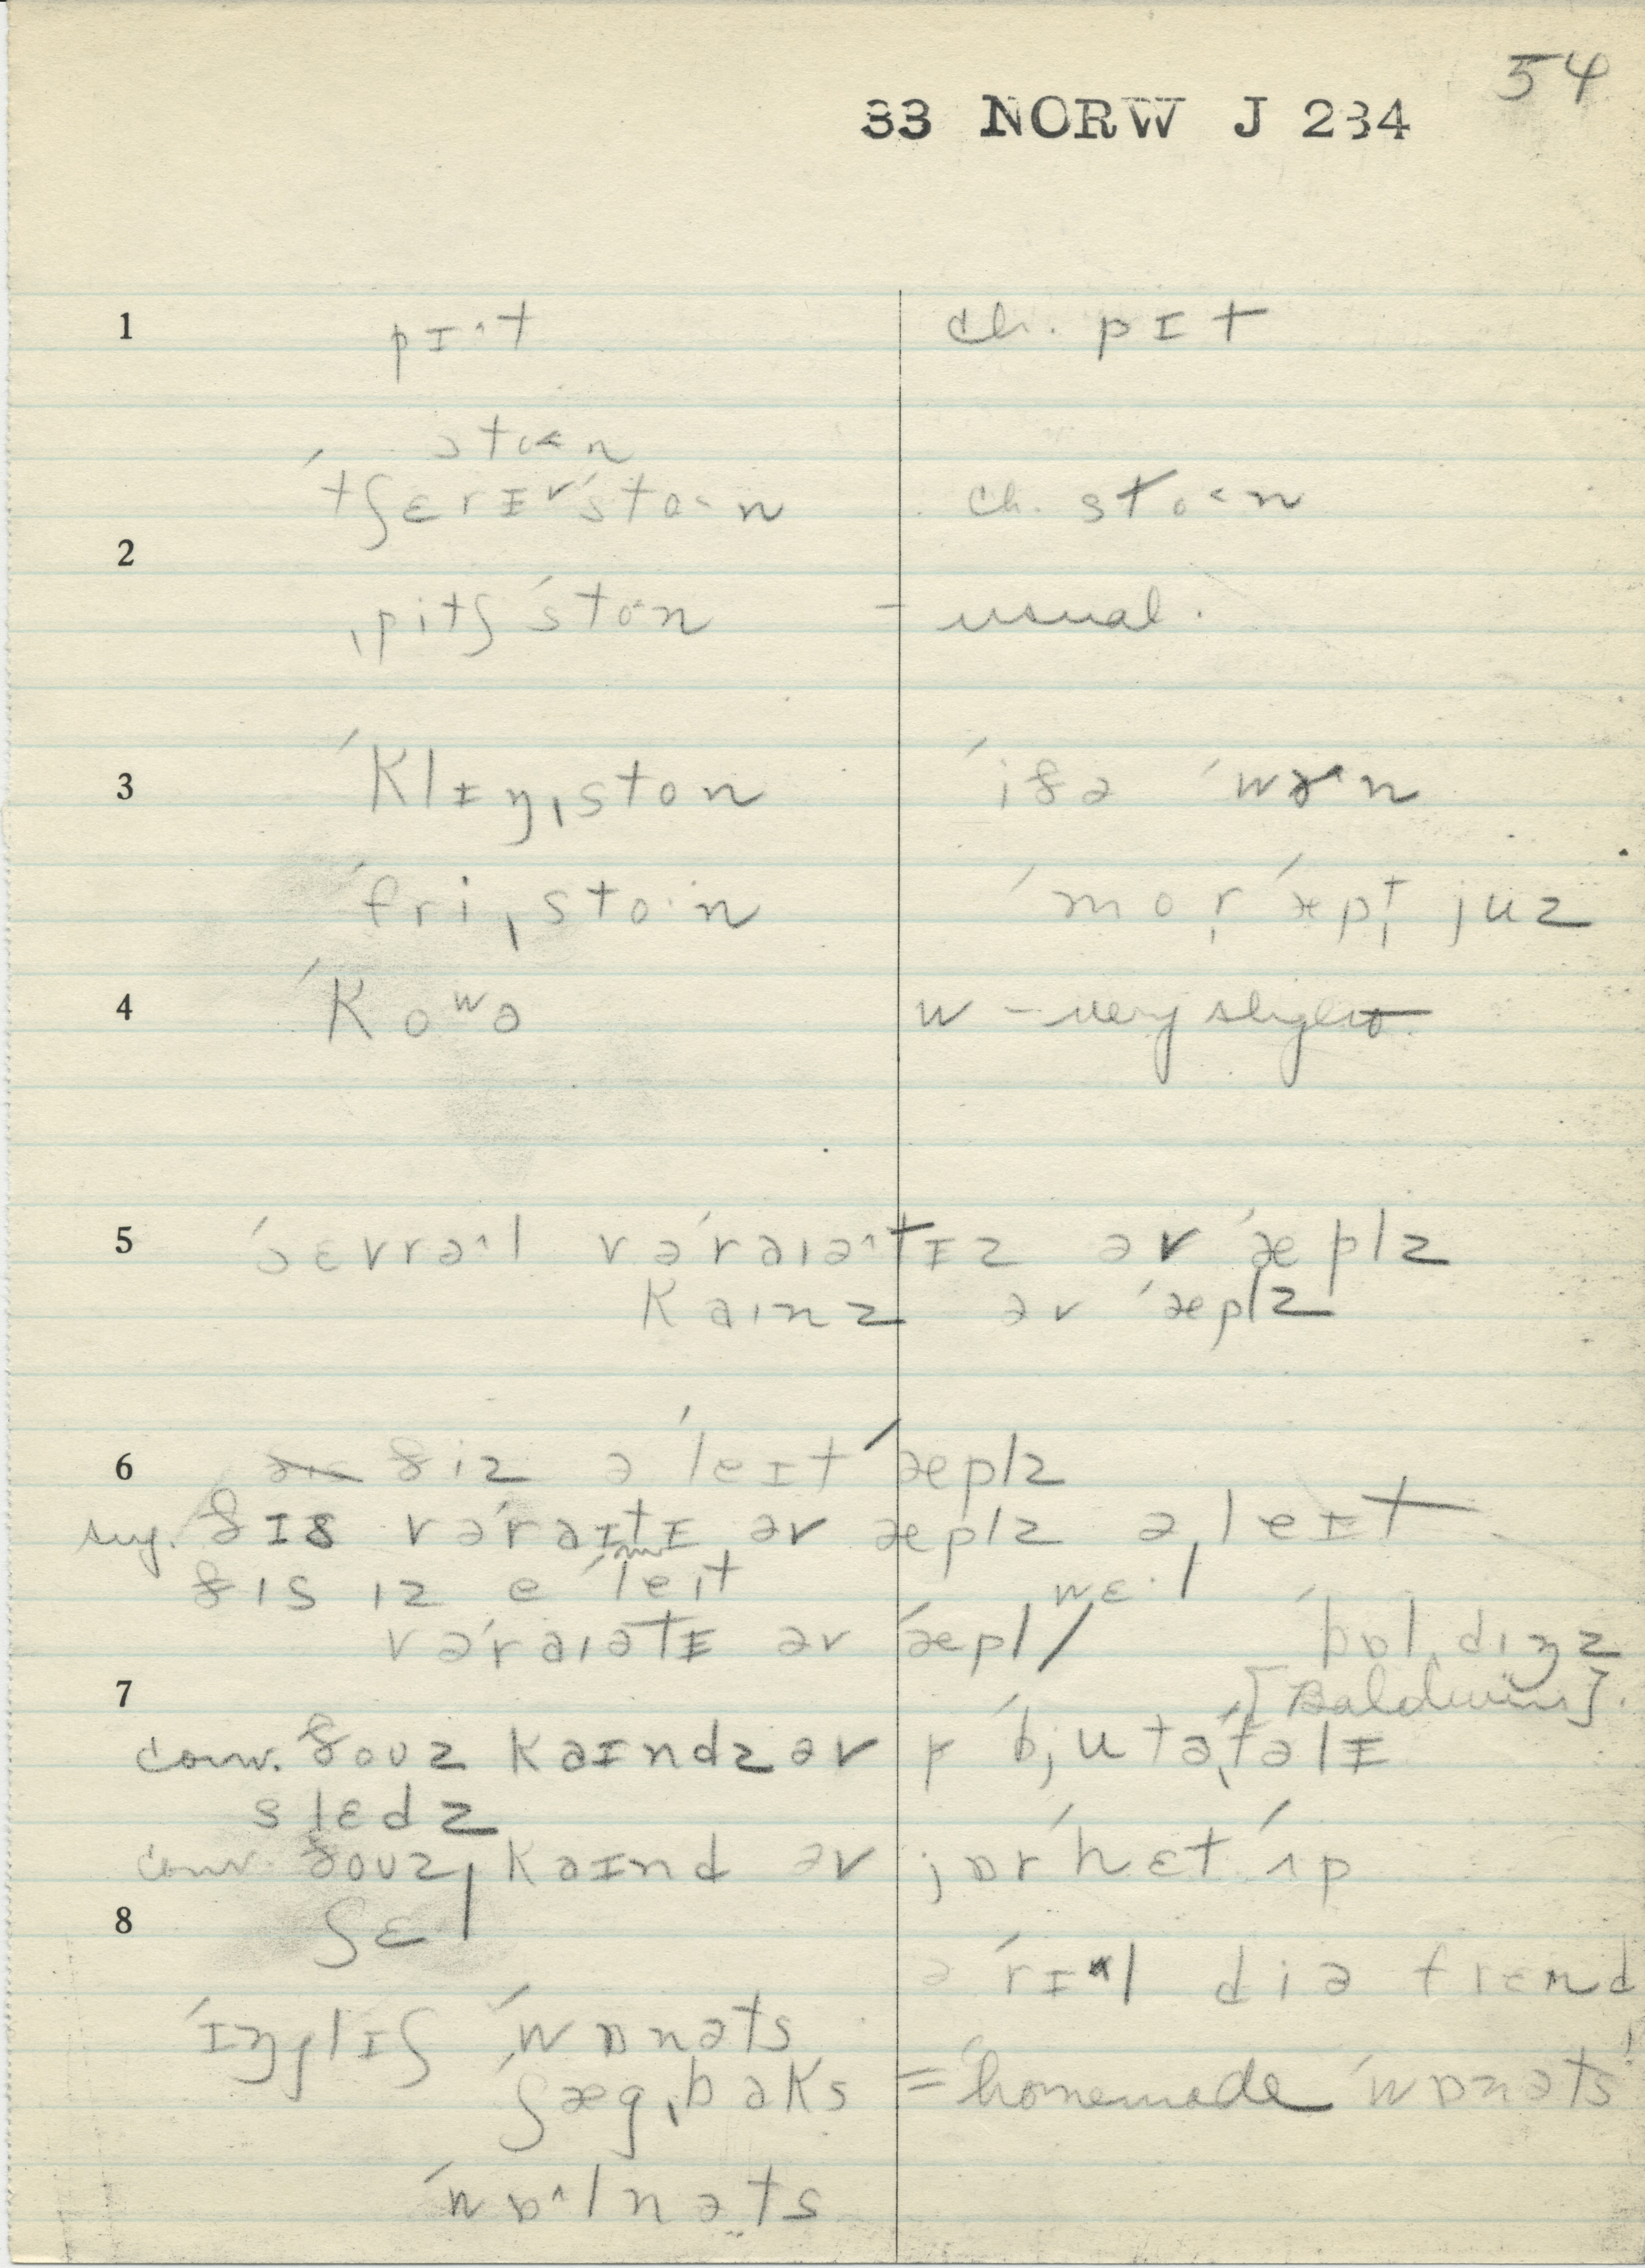 54
33 NORW J 234
1 pɪ^t ch. pɪt
sto<n
ˈtʃɛrɪvˈsto<n ch. sto<n
2
ˌpitʃˈsto<n – usual.
3 ˈklɪŋˌston ˈiðə ˈwɤ^n
ˈfriˌsto·n ˈmor ˈæpt juz
4 ˈkoʷə w – very slight
5 ˈsɛvrə^l vəˈraɪə^tɪz əv ˈæplz
kaɪnz əv ˈæplz
6 ðiz əˈleɪt ˈæplz
sug. ðɪs vəˈraɪtɪ əv æplz əˌleɪt
ðɪs ɪz e ˈleɪt wɛ·l
vəˈraɪətɪ əv ˈæpl / ˈbɒldɪŋz
7 [Baldwins].
conv. ðoʊz kaɪndz əv ˈbjutəˌfəlɪ
slɛdz
conv. ðoʊz kaɪnd əv jɒr hɛt ˈʌp
8 ʃɛl
ə ˈrɪ^l diə frɛnd
ˈɪŋglɪʃ ˈwɒnəts
ˈʃægˌbaks = 'homemade ˈwɒnəts'
ˈwɒ^lnəts